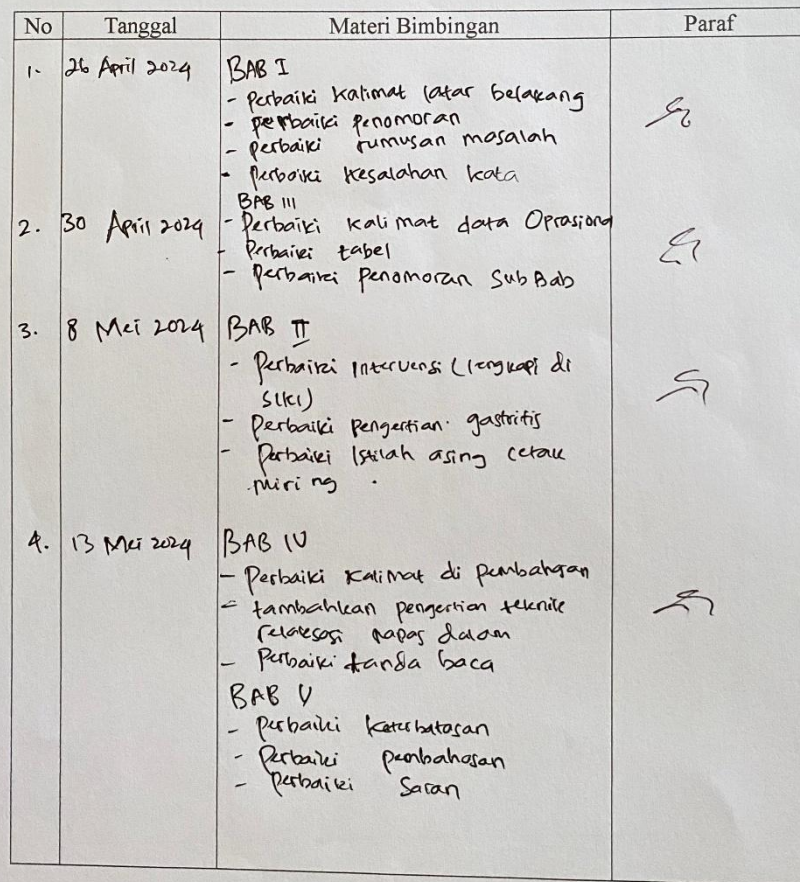 No Tanggal Materi Bimbingan Paraf
1. 26 April 2024 BAB I
- Perbaiki Kalimat latar belakang
- perbaiki penomoran
- perbaiki rumusan masalah
- Perbaiki Kesalahan kata
BAB III
2. 30 April 2024 - Perbaiki Kalimat data Oprasional
- Perbaiki tabel
- Perbaiki Penomoran Sub Bab
3. 8 Mei 2024 BAB II
- Perbaiki Intervensi (lengkapi di
SIKI)
- Perbaiki pengertian gastritis
- Perbaiki Istilah asing cetak
miring
4. 13 Mei 2024 BAB IV
- Perbaiki Kalimat di pembahasan
- tambahkan pengertian teknik
relaksasi napas dalam
- Perbaiki tanda baca
BAB V
- Perbaiki keterbatasan
- Perbaiki pembahasan
- Perbaiki Saran